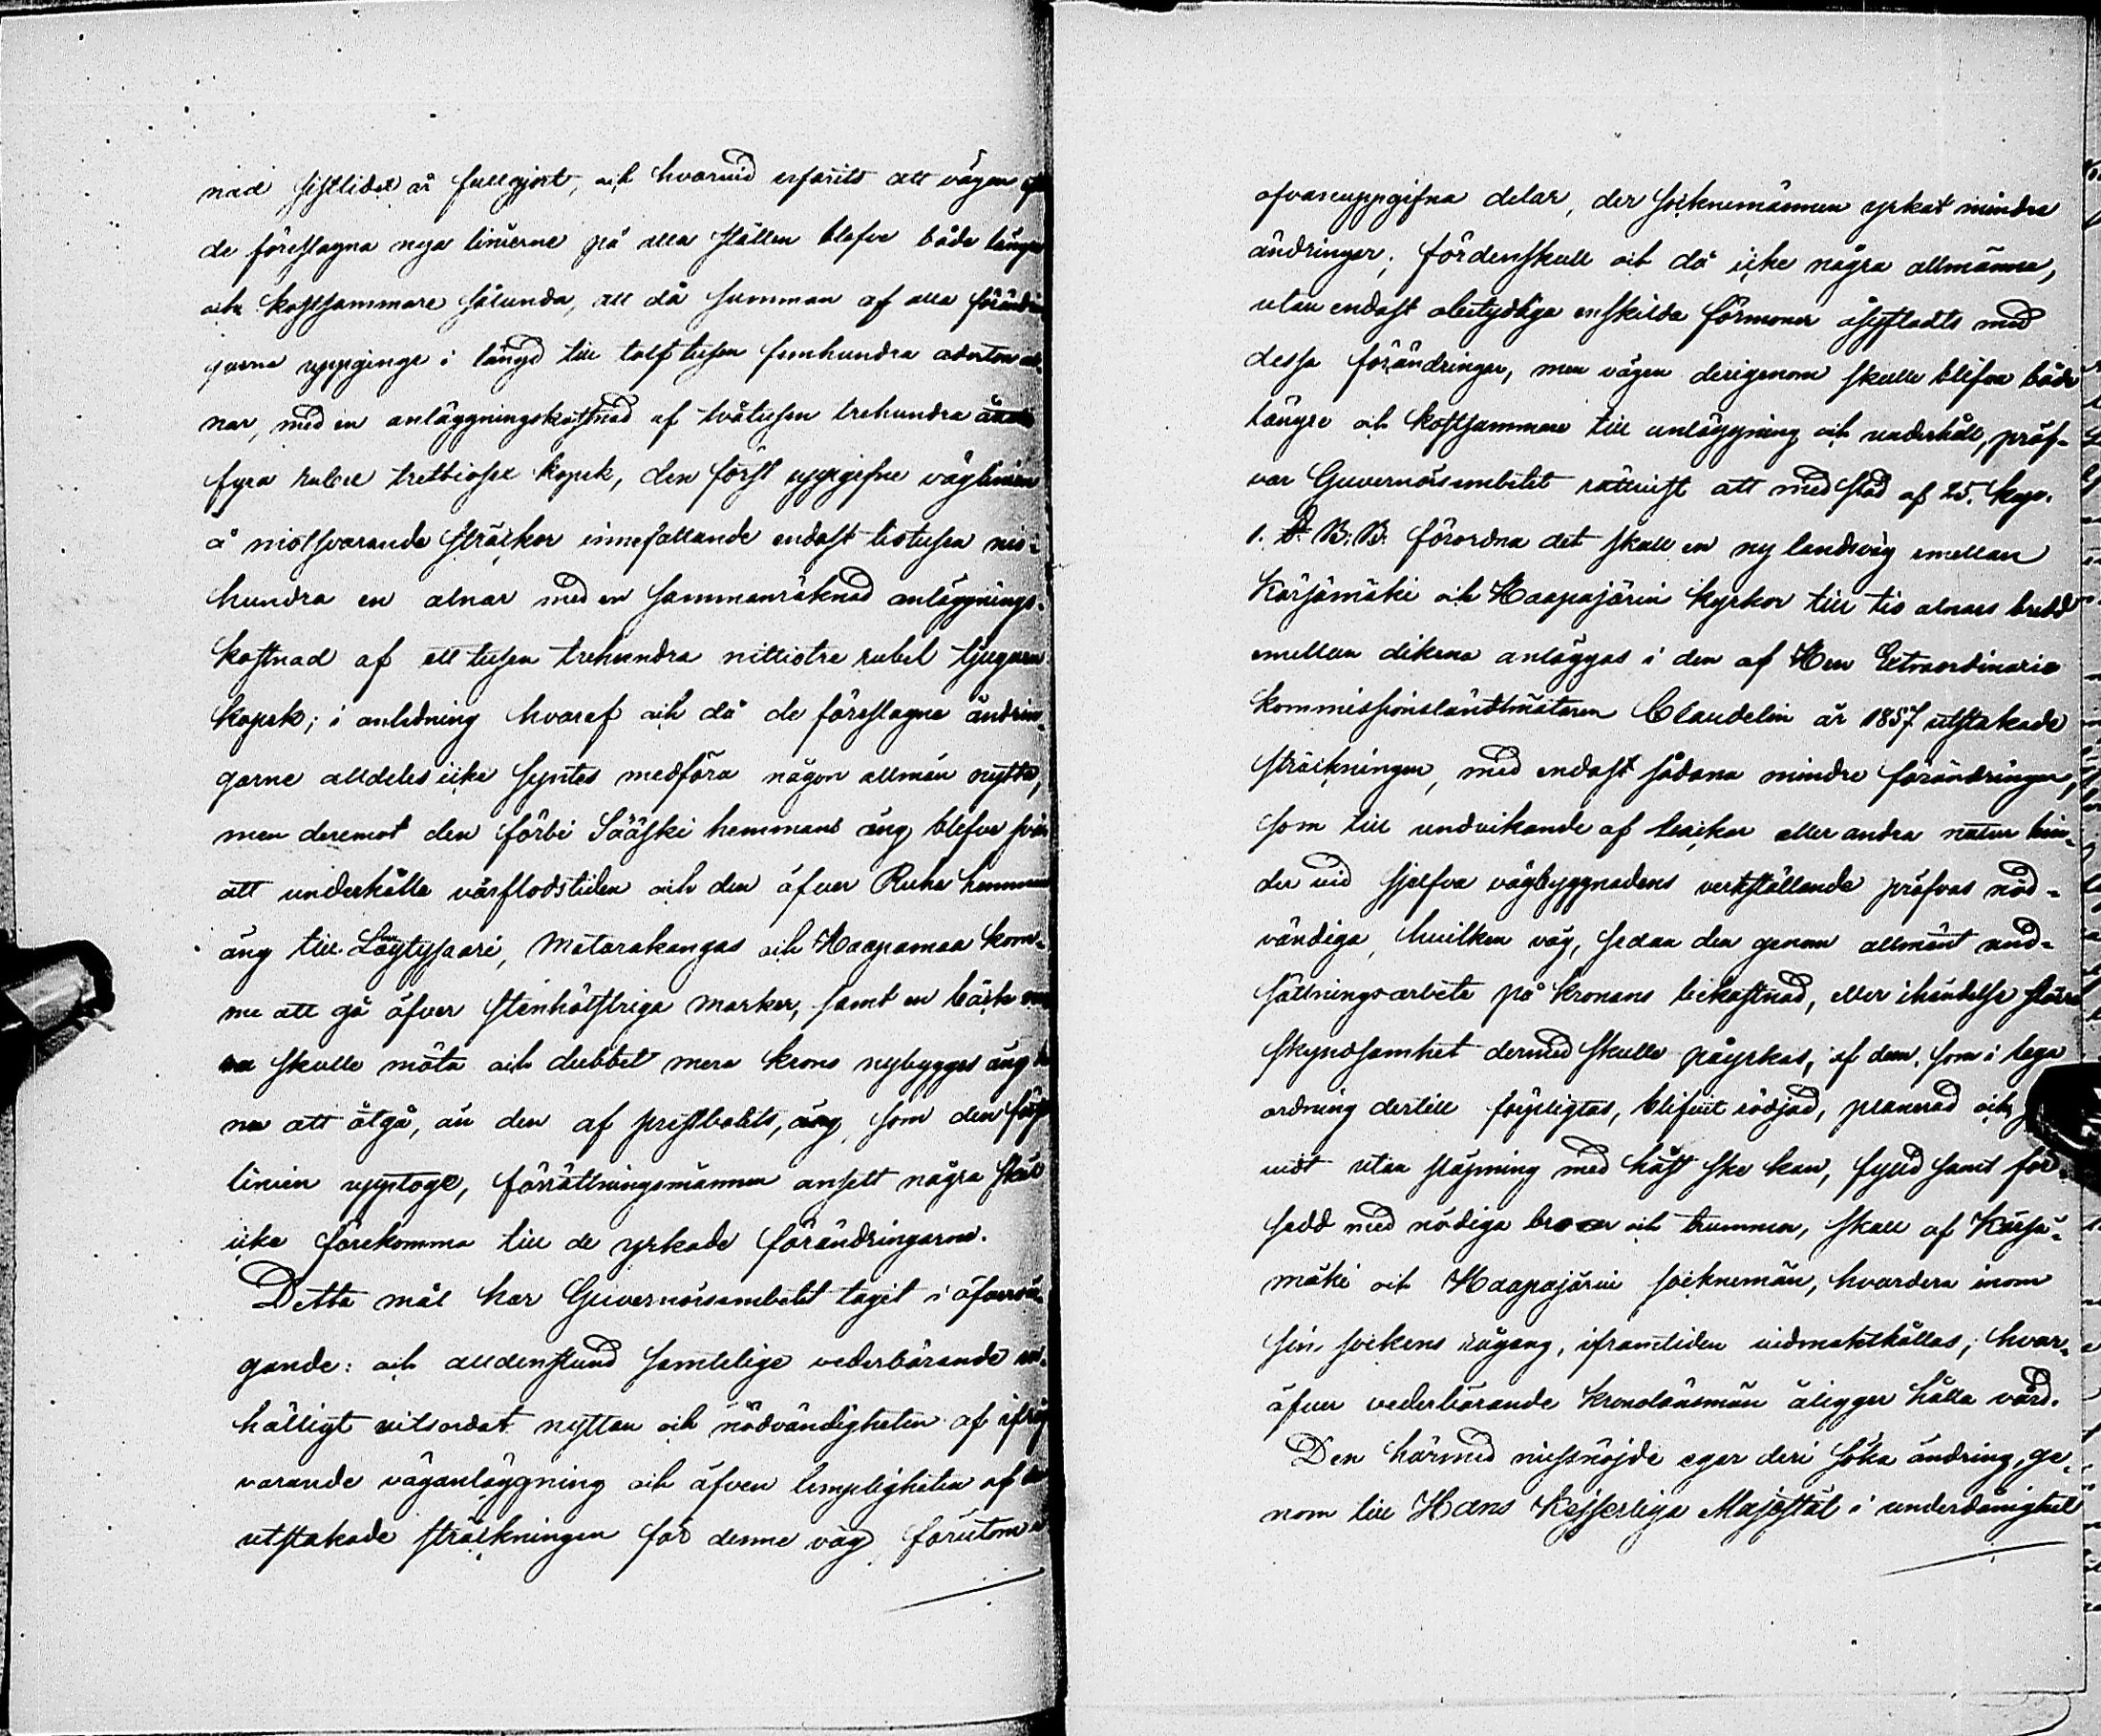 nad sistlidet år fullgjort, och hvarvid erfarits att vägen
de föreslagna nya linierne på alla ställen blefve både längre
och kostsammare sålunda, att då summan af alla förändrin
garna uppginge i längd till tolf tusen femhundra aderton al
nar, med en anläggningskostnad af tvåtusen trehundra
fyra rubel trettiosex kopek, den först uppgifne väglinien
å motsvarande sträckor innefattande endast tiotusen nio-
hundra en alnar med en sammanräknad anläggnings-
kostnad af ett tusen trehundra nittiotre rubel tjugu
kopek; i anledning hvaraf och då de föreslagne ändrin-
garne alldeles icke syntes medföra någon allmän nytta,
men deremot den förbi Sääski hemmans äng blefve svår
att underhålla vårflodstiden och den öfver Ruha hemmans
äng till Löytysaari, Matarakangas och Haapamaa kom-
me att gå öfver stenhölstriga marker, samt en bäck
skulle möta och dubbel mera krons nybygges äng
na att åtgå, än den af prestbolets, äng, som den först
linien upptoge, förrättningsmännen ansett några skäl
icke förekomma till de yrkade förändringarne.
Detta mål har Guvernörsembetet tagit i öfvervä-
gande: och alldenstund samtelige vederbörande en-
hälligt vitsordat nyttan och nödvändigheten af ifråg
varande väganläggning och äfven lämpligheten af
utstakade sträckningen för denne väg, förutom
ofvanuppgifna delar, der socknemännen yrkat mindre
ändringar; fördenskull och då icke några allmänna,
utan endast obetydliga enskilda förmoner åsyftadts med
dessa förändringar, men vägen derigenom skulle blifva både
längre och kostsammare till anläggning och underhåll, pröf-
var Guvernörsembetet rättvist att med stöd af 25. Kap.
1. § B.B. förordna det skall en ny landsväg emellan
Kärsämäki och Haapajärvi kyrkor till tio alnars bredd
emellan dikena anläggas i den af Herr Extraordinarie
kommissionslandtmätaren Claudelin år 1857 utstakade
sträckningen, med endast sådana mindre förändringar,
som till undvikande af backar eller andra natur hin-
der vid sjelfva vägbyggnadens verkställande pröfvas nöd-
vändiga, hvilken väg, sedan den genom allmänt und-
sättningsarbete på kronans bekostnad, eller ihändelse större
skyndsamhet dermed skulle påyrkas, af dem, som i laga
ordning dertill förpligtas, blifvit rödjad, planerad och
vidt utan släpning med häst ske kan, fylld samt för-
sedd med nödiga broar och trummor, skall af Kärsä-
mäki och Haapajärvi socknemän, hvardera inom
sin sockens rågang, iframtiden vidmakthållas; hvar-
öfver vederbörande Kronolänsmän åligger hålla vård.
Den härmed missnöjde eger deri söka ändring, ge-
nom till Hans Kejserliga Majestät i underdånighet